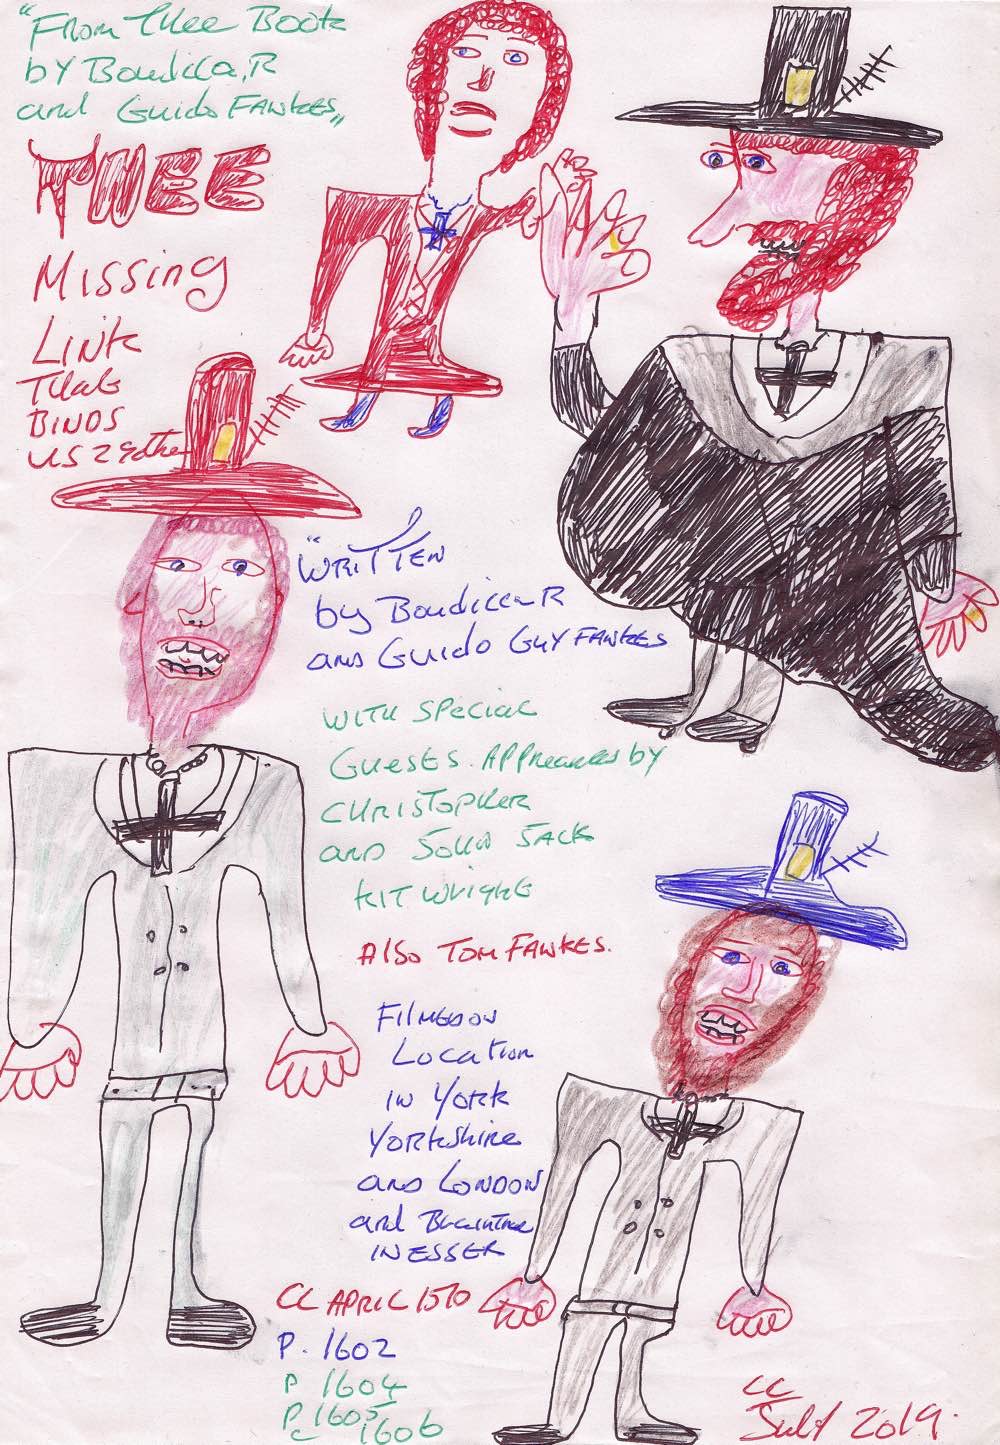 "From Thee Book
by Boudicca, R
and Guido FAWKES,,
THEE
Missing
Link
That
BINDS
US 2gether
"WRITTEN
by Boudicca R
and Guido GUY FAWKES
WITH SPECIAL
GUESTS. APPREANCES by
CHRISTOPHER
and JOHN JACK
KIT WRIGHT
Also TOM FAWKES.
FILMED ON
Location
in York
YORKSHIRE
and LONDON
and
IN ESSEX
CC APRIL 1570
P. 1602
P 1604
P 1605
C 1606
CC
July 2019.